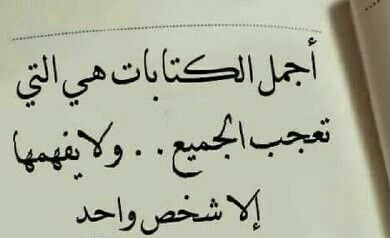 أجمل الكتابات هي التي
تعجب الجميع . . ولا يفهمها
إلا شخص واحد